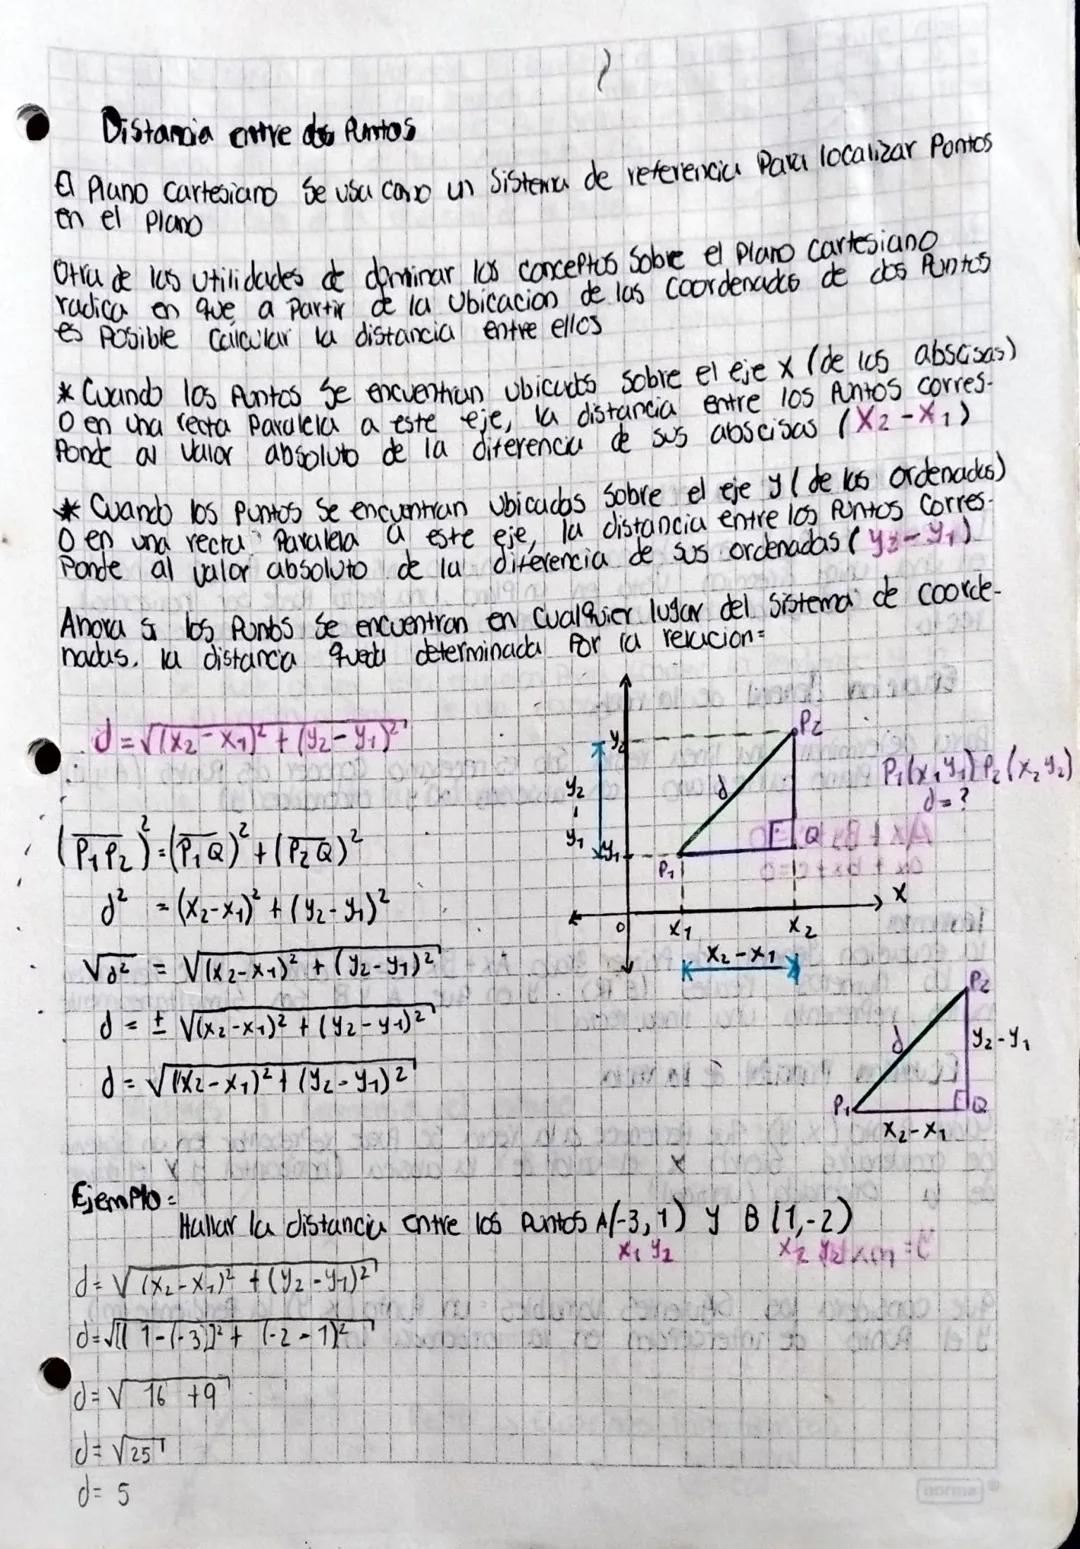 Distancia entre dos Puntos
El Plano cartesiano Se usa como un Sistema de referencia Para localizar Pontos
en el Plano
Otra de las utilidades de dominar los conceptos Sobre el Plano cartesiano
radica en que a Partir de la Ubicacion de las Coordenadas de dos Puntos
es Posible Calcular la distancia entre ellos
* Cuando los Puntos Se encuentran Ubicados Sobre el eje x (de las abscisas)
O en una recta Paralela a este eje, la distancia entre los Puntos corres-
Ponde al Valor absoluto de la diferencia de sus abscisas (X2-X1)
* Cuando los Puntos Se encuentran Ubicados Sobre el eje y (de las ordenadas)
O en una recta Paralela a este eje, la distancia entre los Puntos Corres-
Ponde al valor absoluto de la diferencia de sus ordenadas (y2-y1)
Ahora si los Puntos Se encuentran en Cualquier lugar del Sistema de coorde-
nadas. la distancia queda determinada Por la relacion=
d=√(x2-x1)²+(y2-y1)²
P2
y2
d
P1(x1y1) P2(x2y2)
d=?
y2
-
y1
y1
P1
Q
(P1P2)²=(P1Q)²+(P2Q)²
d²=(x2-x1)²+(y2-y1)²
x
0
x1
x2
x2-x1
√d² = √(x2-x1)²+(y2-y1)²
d = ± √(x2-x1)²+(y2-y1)²
d=√(x2-x1)²+(y2-y1)²
P2
d
y2-y1
P1
Q
x2-x1
Ejemplo=
Hallar la distancia entre los puntos A(-3,1) y B(1,-2)
x1 y2
x2 y2
d=√(x2-x1)²+(y2-y1)²
d=√[1-(-3)]²+(-2-1)²
d=√16+9
d=√25
d=5
norma